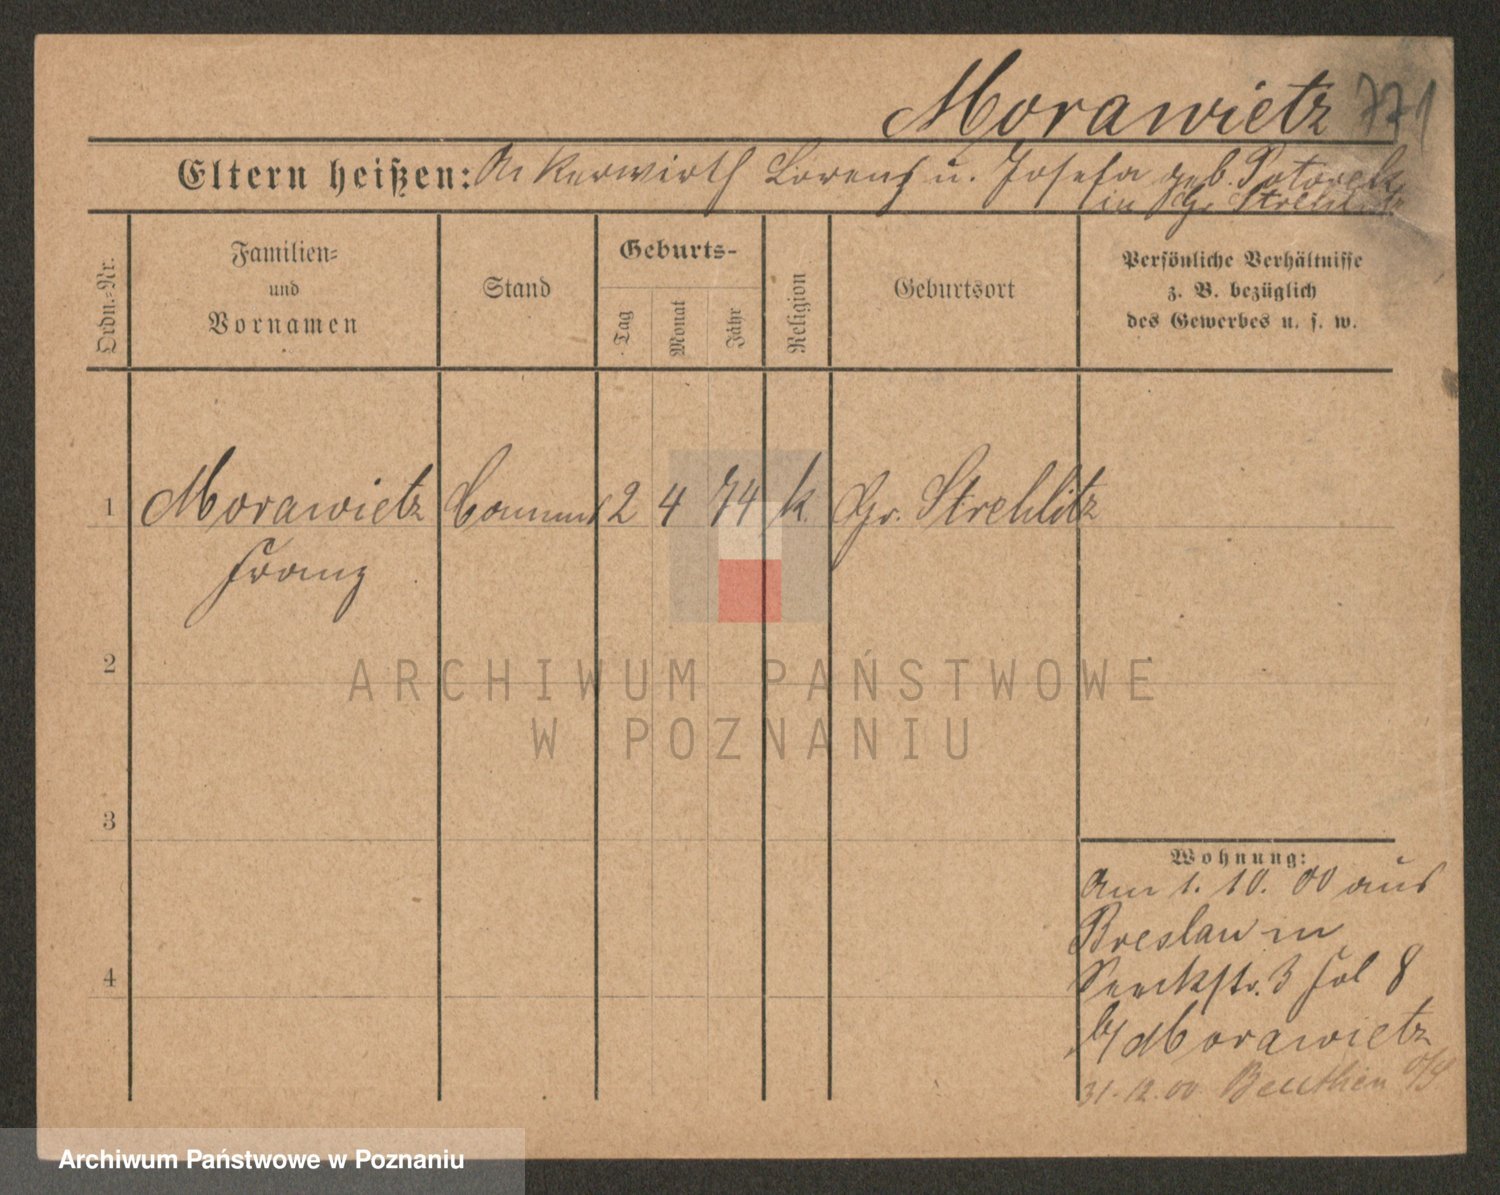 Morawietz 771
Eltern heißen: Ackerwirth Lorenz u. Josefa geb.
in Gr. Strehlitz
Ordn.-Nr.
Familien-
und
Vornamen
Stand
Geburts-
Tag
Monat
Jahr
Religion
Geburtsort
Persönliche Verhältnisse
z. B. bezüglich
des Gewerbes u. s. w.
1 Morawietz Commis 2 4 74 k. Gr. Strehlitz
Franz
2
3
4
ARCHIWUM PAŃSTWOWE
W POZNANIU
Wohnung:
Am 1. 10. 00 aus
Breslau in
3 8
b/ Morawietz
31.12.00 Beuthen O/S
Archiwum Państwowe w Poznaniu